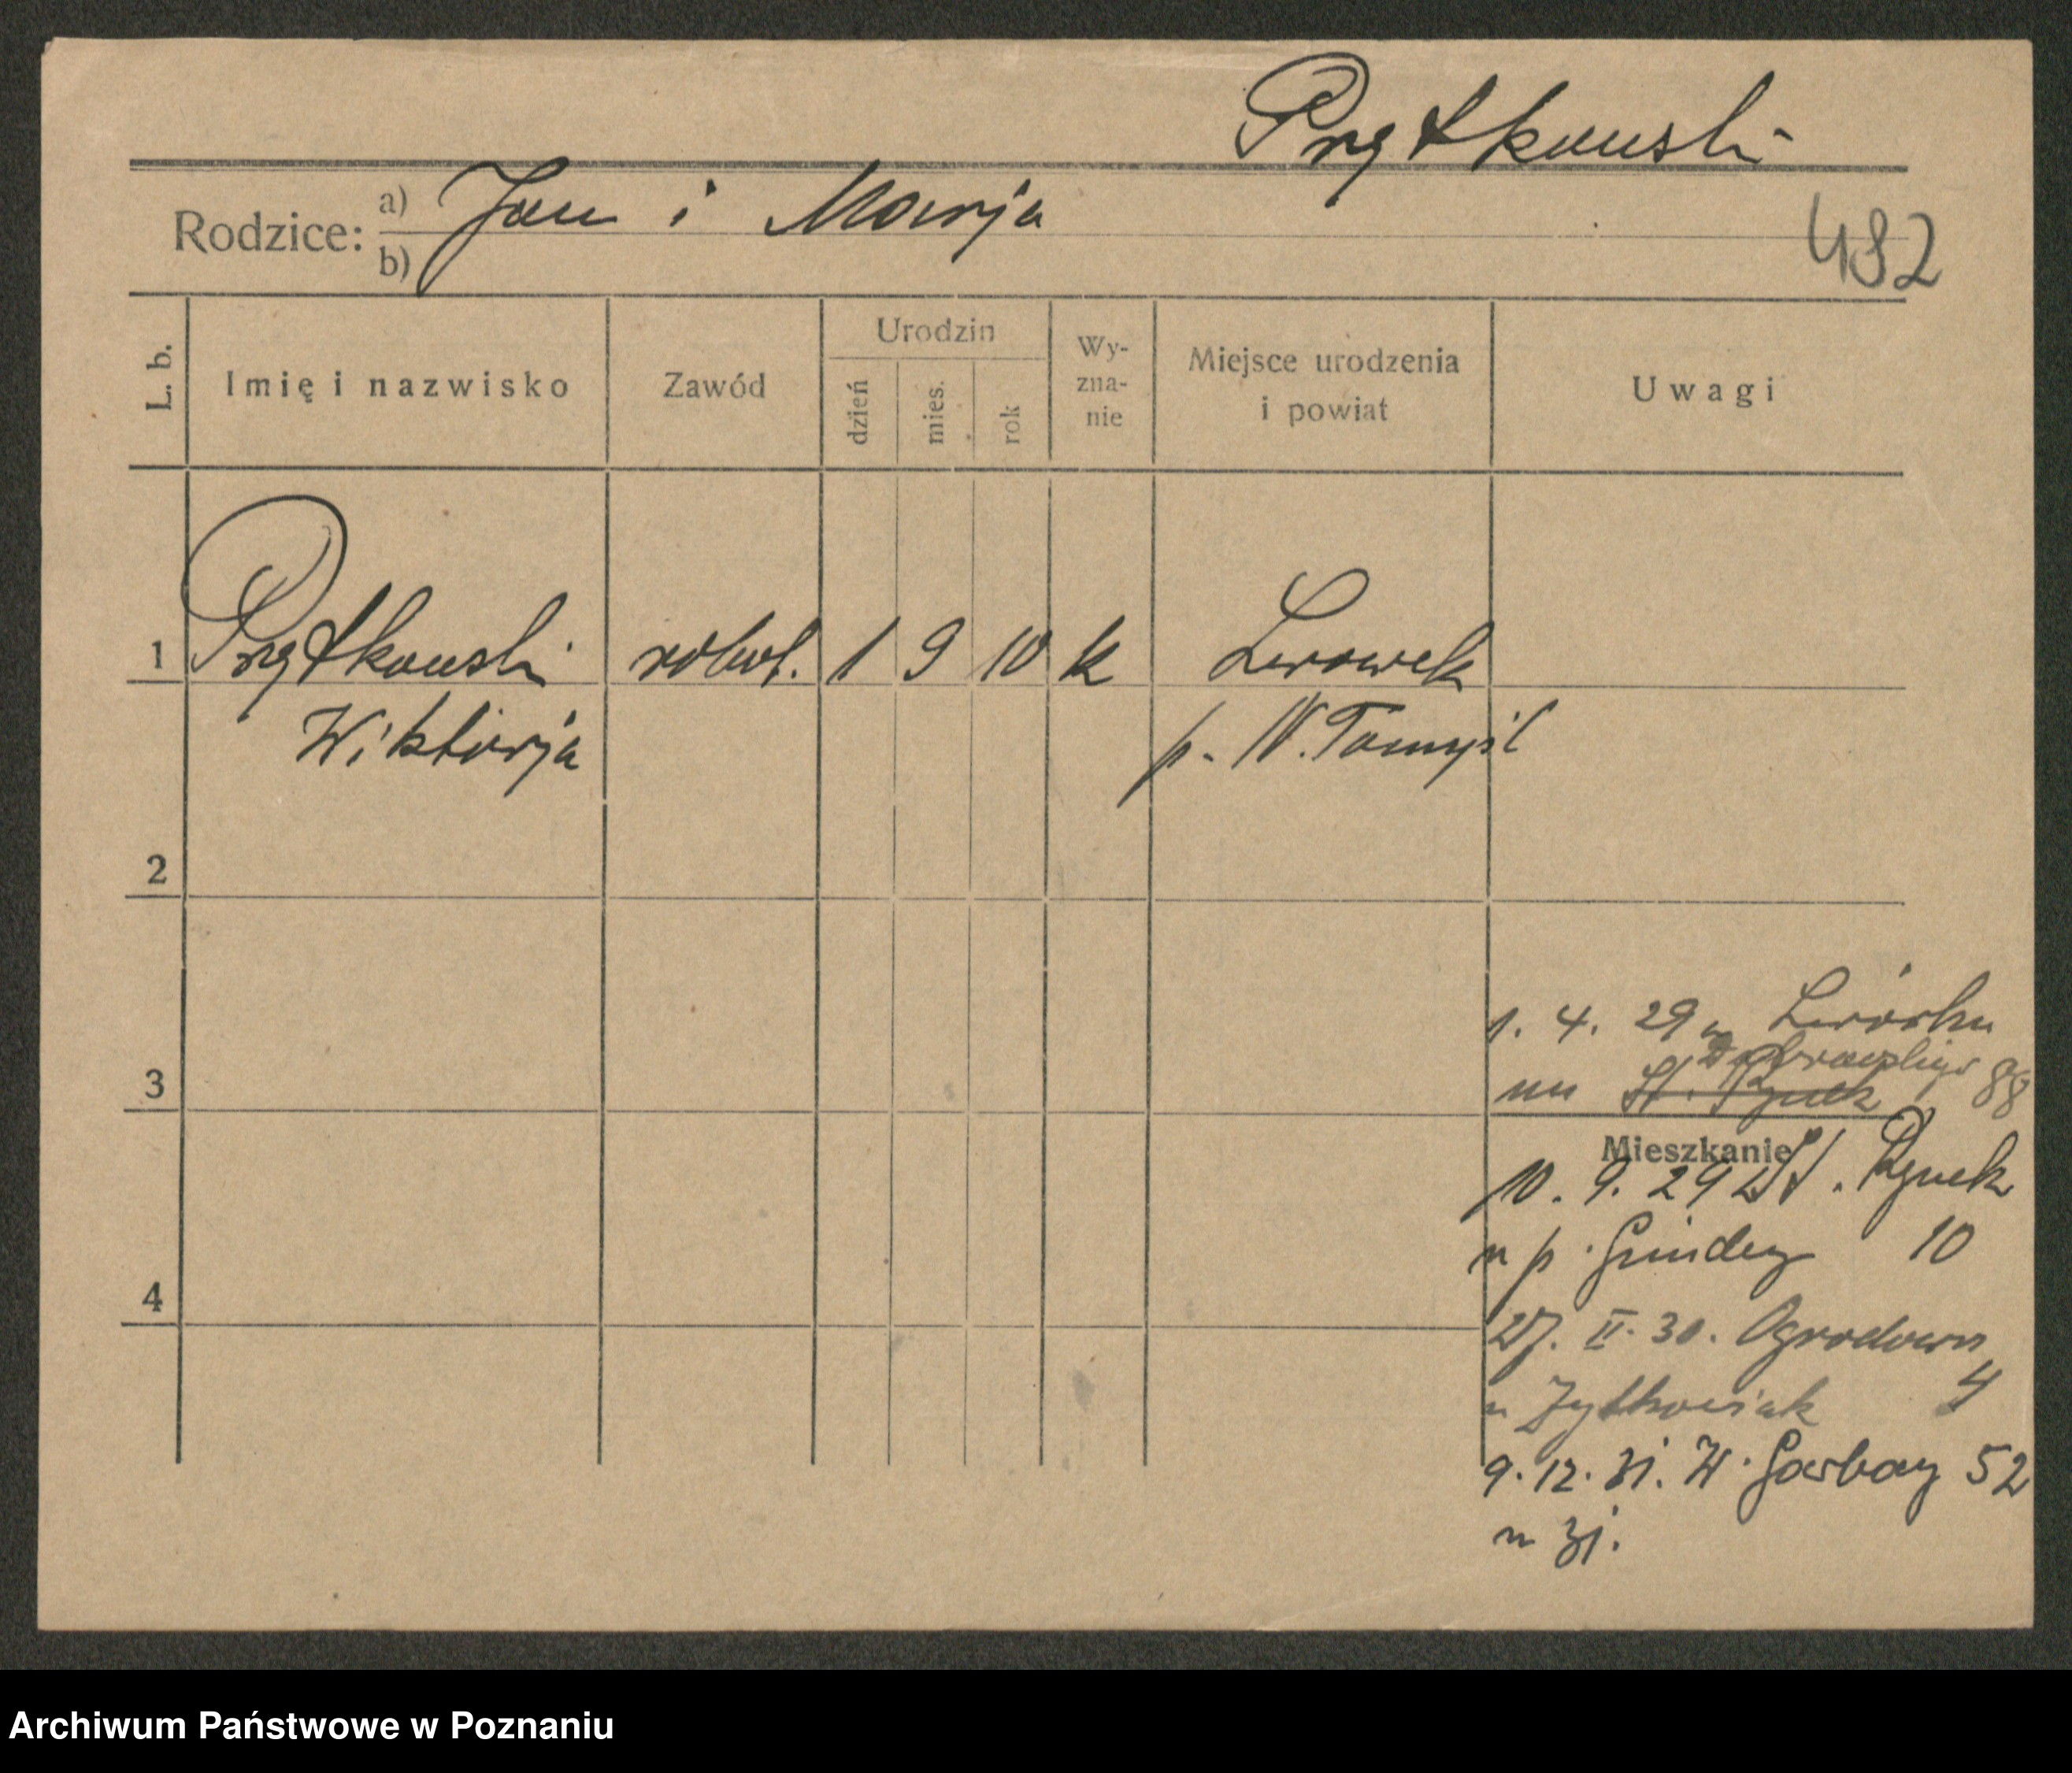 Prętkowski
Rodzice: a) Jan i Marja
b)
482
L. b.
Imię i nazwisko
Zawód
Urodzin
dzień
mies.
rok
Wy-
zna-
nie
Miejsce urodzenia
i powiat
Uwagi
1 Prętkowski robot. 1 9 10 k Lwowek
Wiktorja p. N. Tomyśl
2
3
4
1. 4. 29 w Lwówku
88
St. Rynek
Mieszkanie
10. 9. 29 St. Rynek
u p. 10
27. II. 30. Ogrodowa
u Żytkowiak 4
9. 12. 31. W. Garbary 52
Archiwum Państwowe w Poznaniu